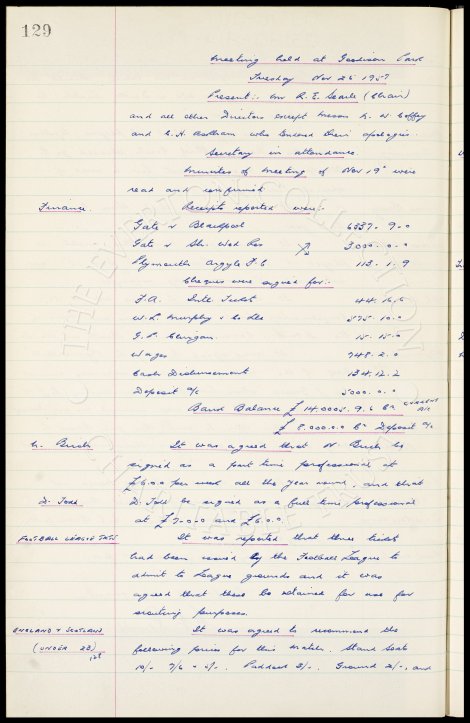 129
Meeting held at Goodison Park
Tuesday Nov 26 1957
Present:- Mr R. E. Searle (Chair)
and all other Directors except Messrs L. W. Coffey
and C. H. Askham who tendered their apologies.
Secretary in attendance.
Minutes of meeting of Nov 19th were
read and confirmed
Finance. Receipts reported were:-
Gate v Blackpool 6337. 9. 0
Gate v Sh. Wed Res 3000. 0. 0
Plymouth Argyle F.C 113. 1. 9
Cheques were signed for:-
F.A. Intl Tickets 44. 16. 6
W. L. Murphy & Co Ltd 575. 10. 0
G. P. 15. 15. 0
Wages 748. 2. 0
Cash Disbursement 134. 12. 2
Deposit a/c 5000. 0. 0
Bank Balance £14,000. 9. 6 Cr CURRENT A/C
£8,000. 0. 0 Cr Deposit a/c
N. Buck It was agreed that N. Buck be
signed as a part time professional at
£6.0.0 per week all the year round, and that
D. Todd D. Todd be signed as a full time professional
at £7-0-0 and £6.0.0.
FOOTBALL LEAGUE TKTS It was reported that three tickets
had been issued by the Football League to
admit to League grounds and it was
agreed that these be retained for use for
scouting purposes.
ENGLAND v SCOTLAND It was agreed to recommend the
(UNDER 23) following prices for this match. Stand Seats
10/- 7/6 & 5/-. Paddock 3/-. Ground 2/-, and
THE EVERTON COLLECTION